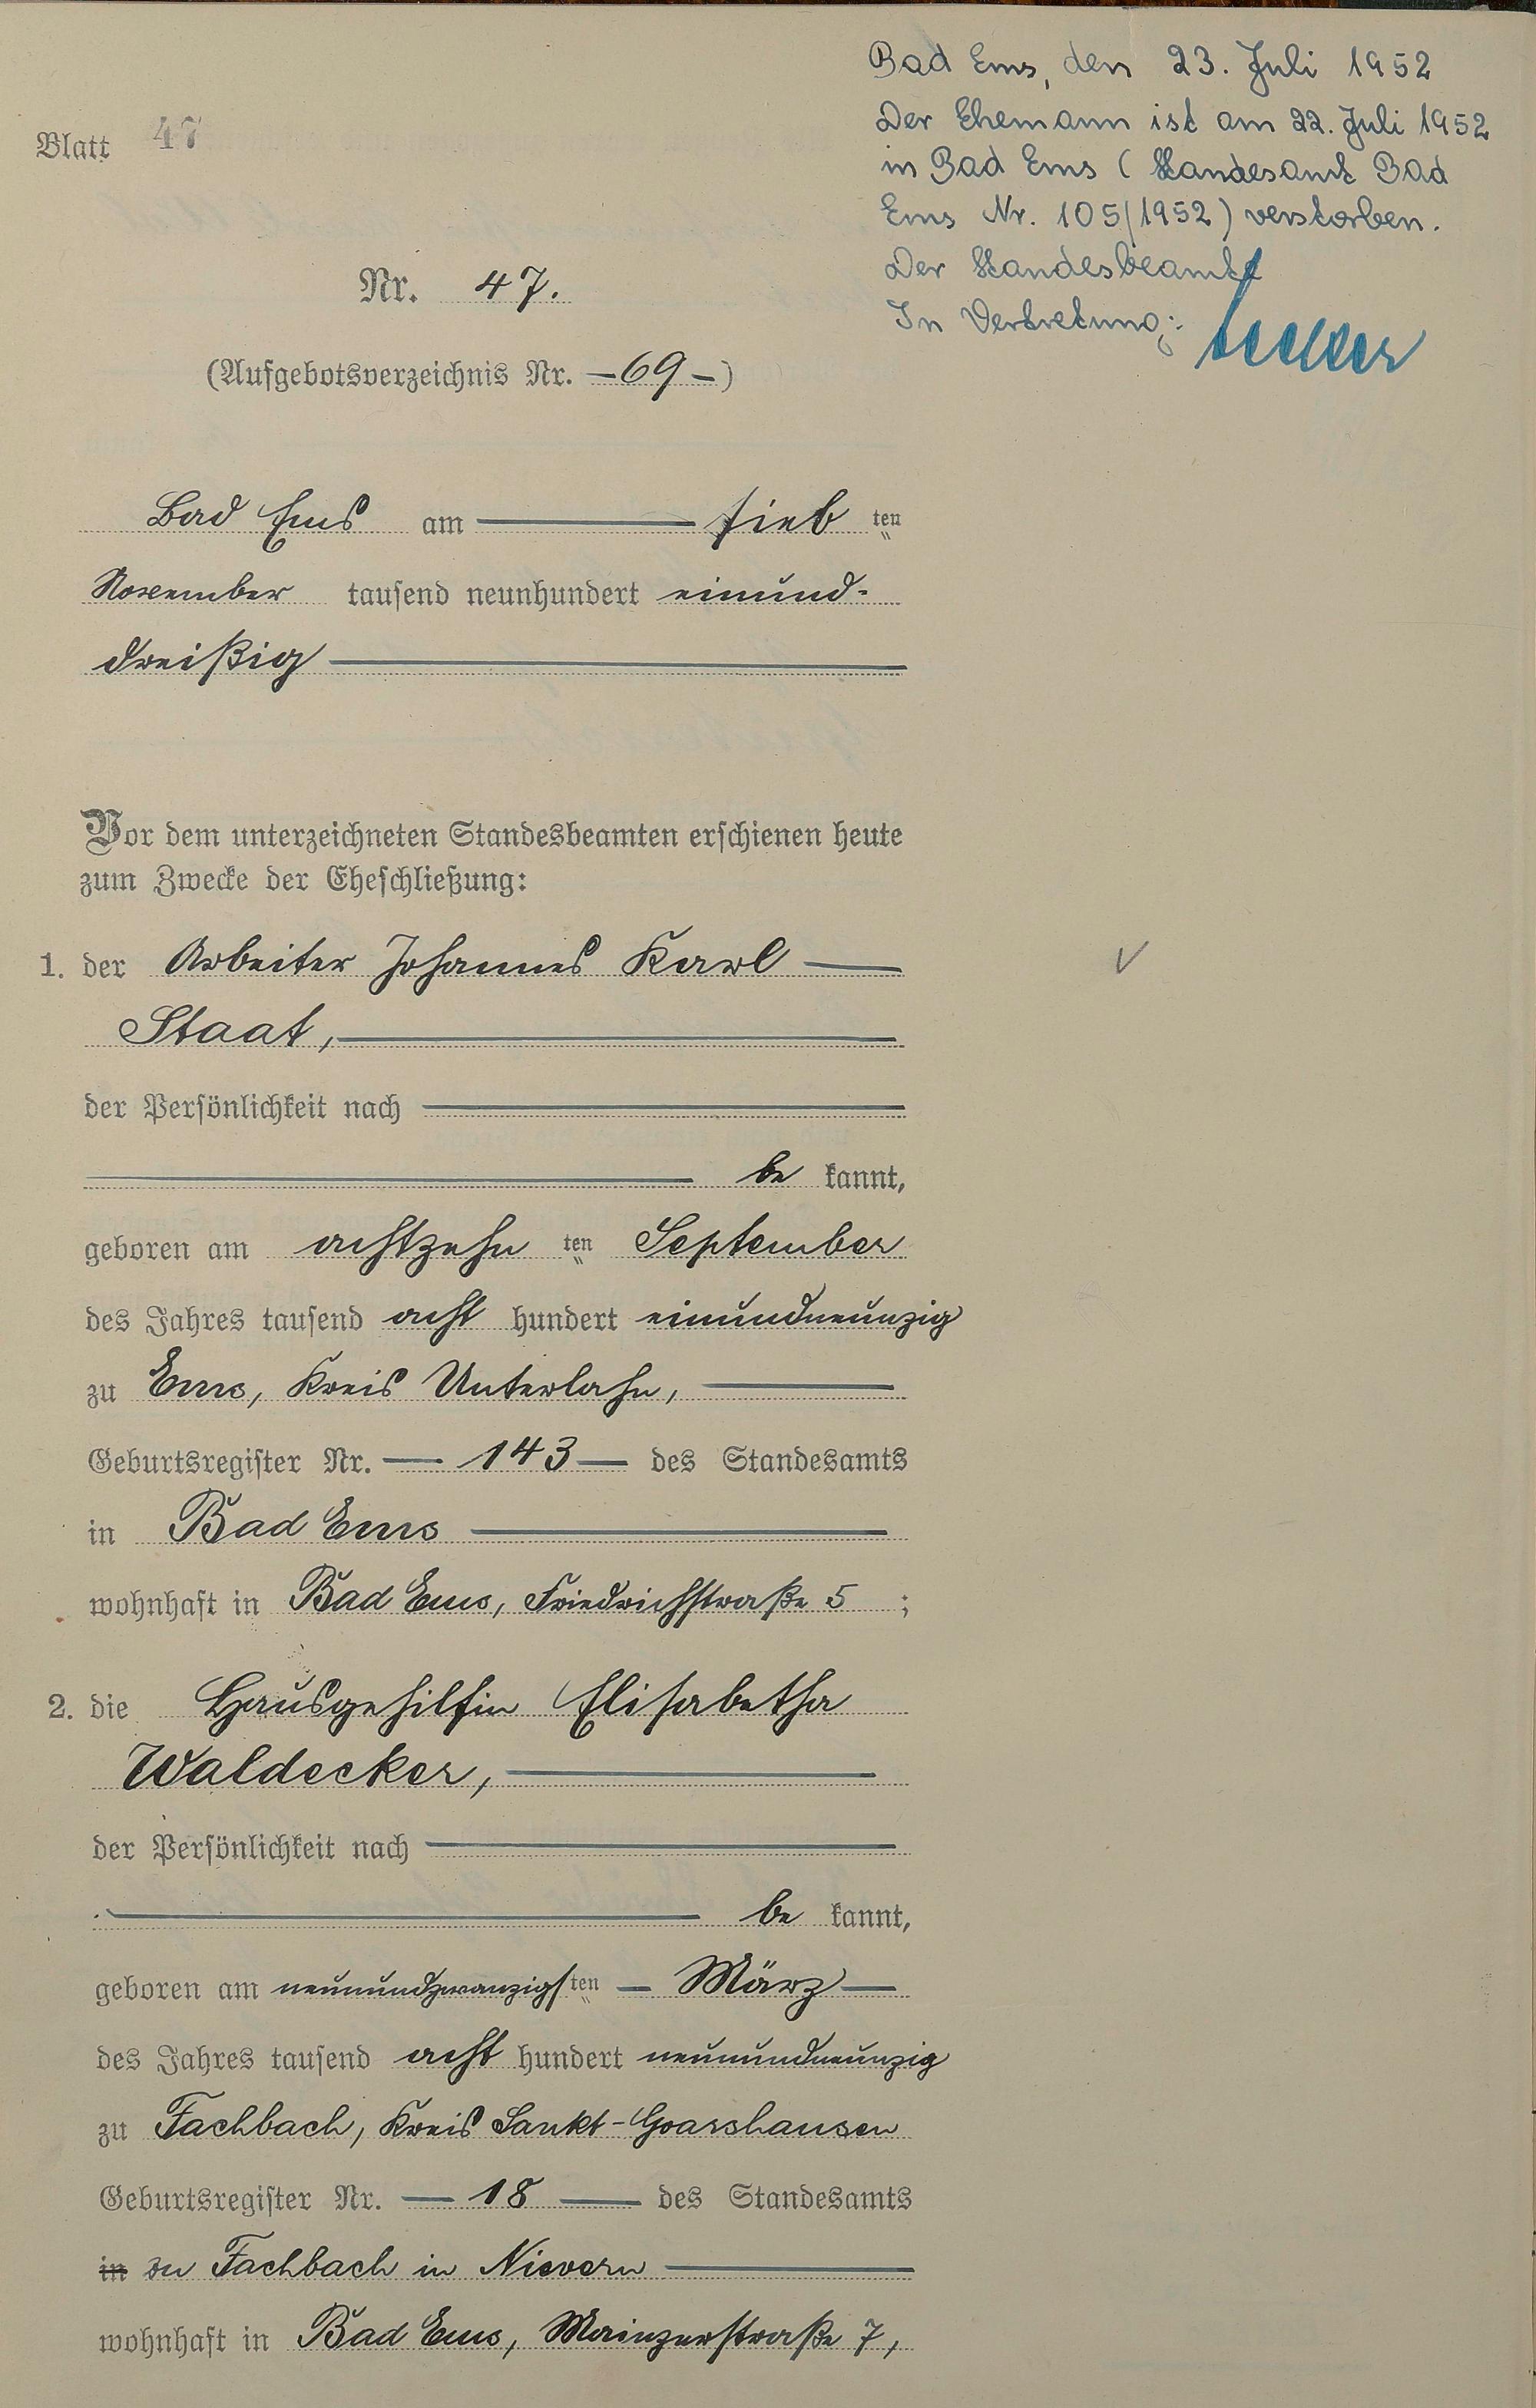 Bad Ems, den 23. Juli 1952
Der Ehemann ist am 22. Juli 1952
in Bad Ems (Standesamt Bad
Ems Nr. 105/1952) verstorben.
Der Standesbeamte
In Vertretung:
Blatt 47
Nr. 47.
(Aufgebotsverzeichnis Nr. —69—)
Bad Ems am — sieb ten
November tausend neunhundert einund-
dreißig —
Vor dem unterzeichneten Standesbeamten erschienen heute
zum Zwecke der Eheschließung:
1. der Arbeiter Johannes Karl —
Staat, —
der Persönlichkeit nach —
— be kannt,
geboren am achtzehn ten September
des Jahres tausend acht hundert einundneunzig
zu Ems, Kreis Unterlahn, —
Geburtsregister Nr. — 143 — des Standesamts
in Bad Ems —
wohnhaft in Bad Ems, Friedrichstraße 5 ;
2. die Hausgehilfin Elisabetha
Waldecker, —
der Persönlichkeit nach —
— be kannt,
geboren am neunundzwanzigsten — März —
des Jahres tausend acht hundert neunundneunzig
zu Fachbach, Kreis Sankt-Goarshausen
Geburtsregister Nr. — 18 — des Standesamts
in zu Fachbach in Nievern —
wohnhaft in Bad Ems, Mainzerstraße 7,